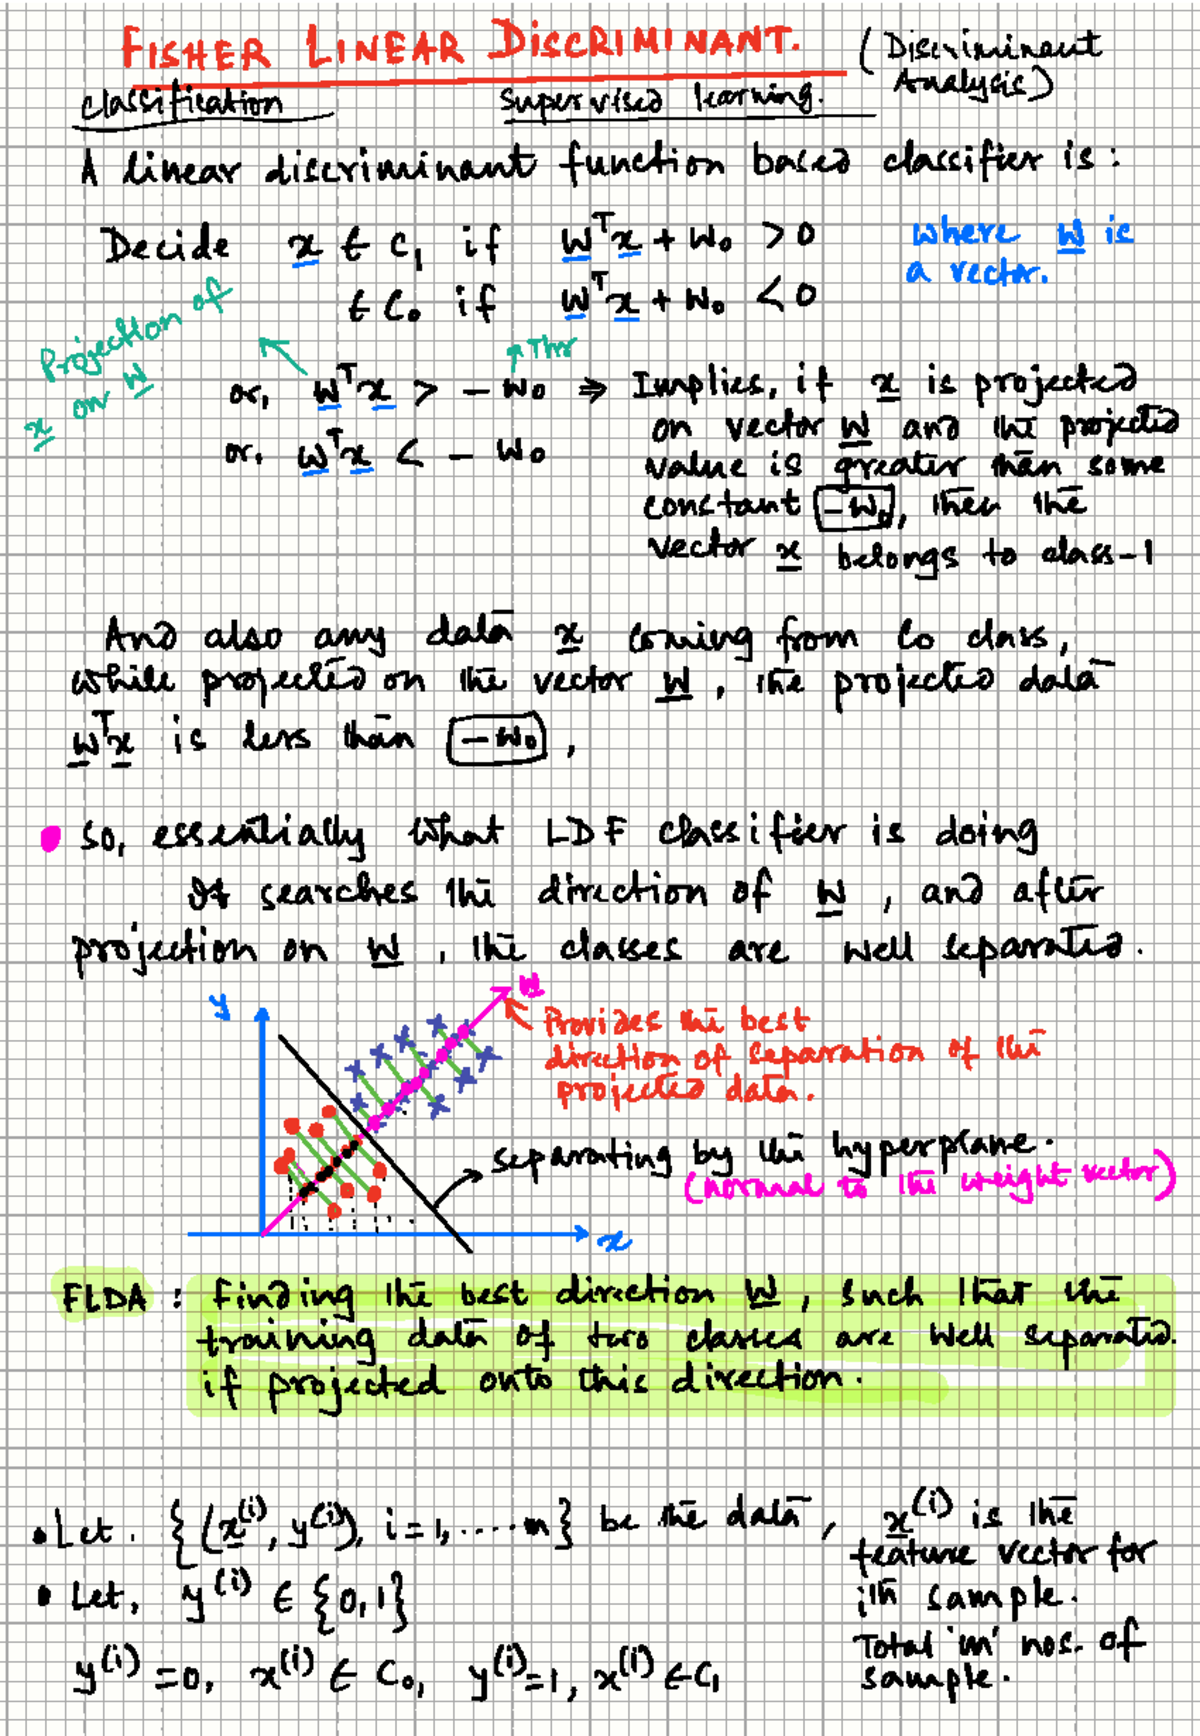 FISHER LINEAR DISCRIMINANT. (Discriminant Analysis)
classification supervised learning.
A linear discriminant function based classifier is:
Decide x ∈ C₁ if wᵀx + w₀ > 0 where w is
a vector.
∈ C₀ if wᵀx + w₀ < 0
Projection of
x on w
Thr
or, wᵀx > - w₀ ⇒ Implies, if x is projected
on vector w and the projected
or, wᵀx < - w₀
value is greater than some
constant -w₀, then the
vector x belongs to class-1
And also any data x coming from C₀ class,
while projected on the vector w, the projected data
wᵀx is less than -w₀,
So, essentially what LDF classifier is doing
It searches the direction of w, and after
projection on w, the classes are well separated.
y
w
Provides the best
direction of separation of the
projected data.
separating by the hyperplane.
(normal to the weight vector)
x
FLDA : finding the best direction w, such that the
training data of two classes are well separated.
if projected onto this direction.
• Let. {(x⁽ⁱ⁾, y⁽ⁱ⁾), i = 1, ..... m} be the data, x⁽ⁱ⁾ is the
feature vector for
ith sample.
• Let, y⁽ⁱ⁾ ∈ {0,1}
Total 'm' nos. of
sample.
y⁽ⁱ⁾ = 0, x⁽ⁱ⁾ ∈ C₀, y⁽ⁱ⁾ = 1, x⁽ⁱ⁾ ∈ C₁